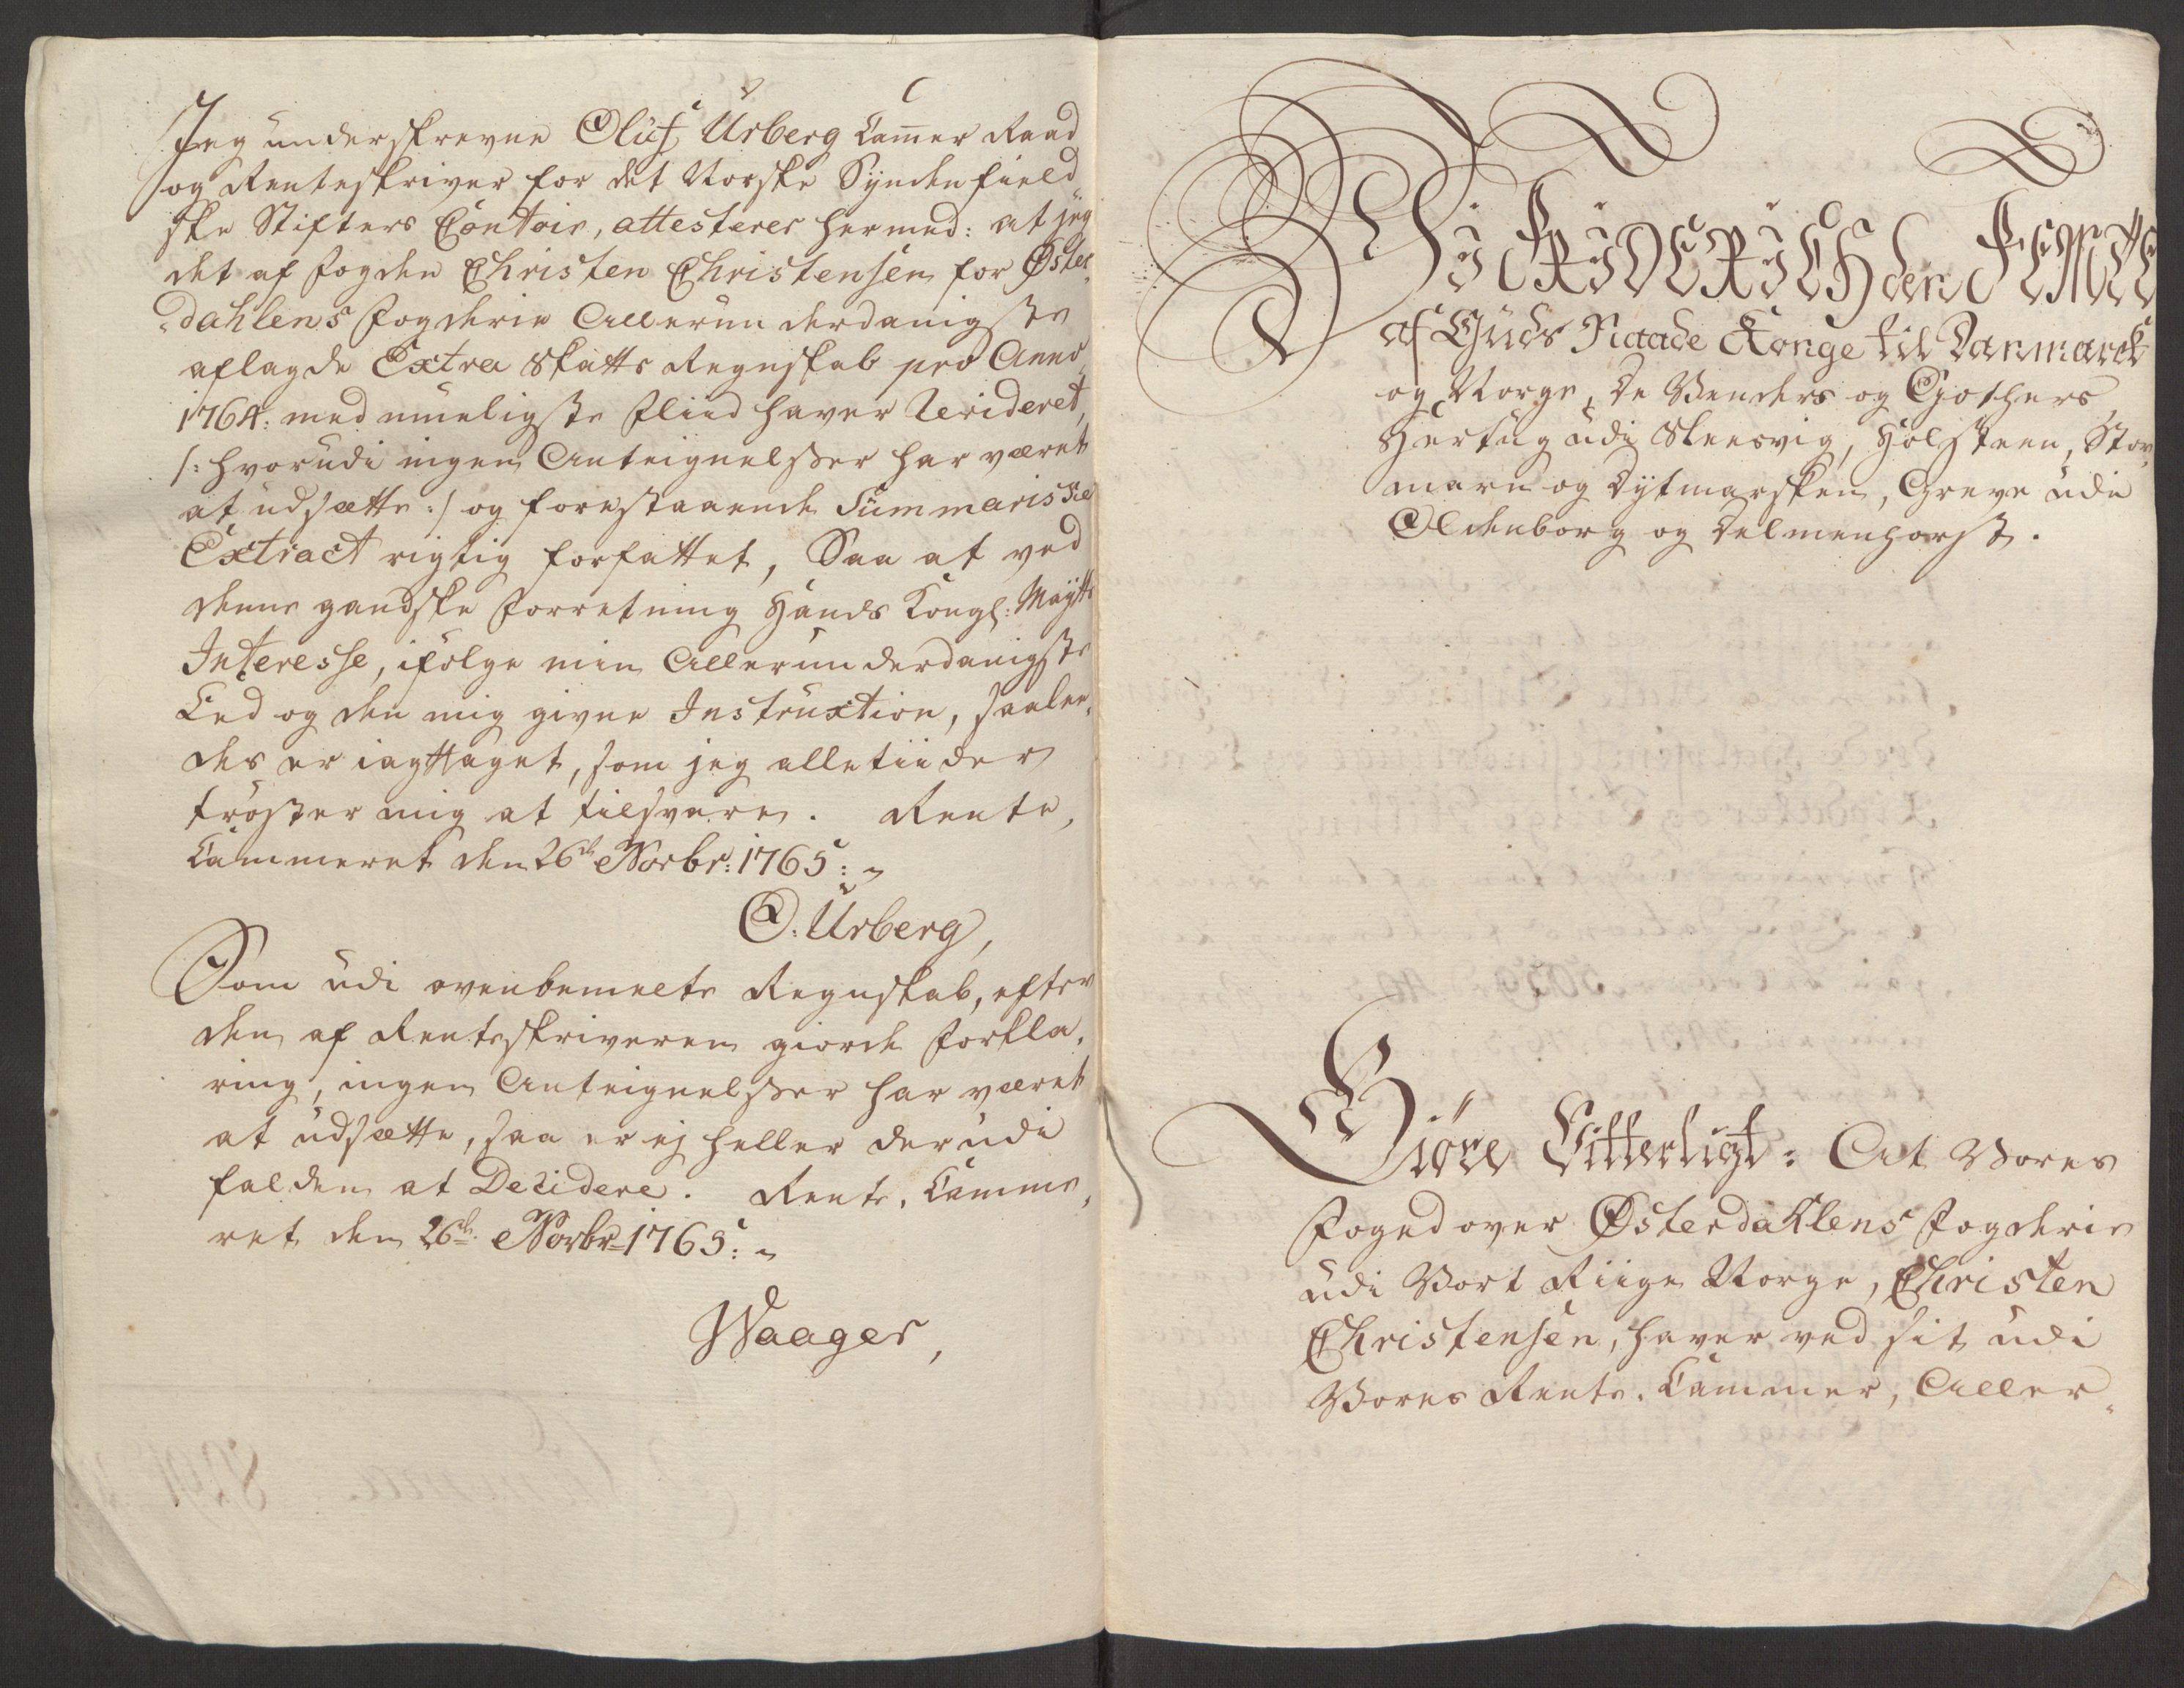 Jeg underskrevne Oluf Urberg Cammer Raad
og Renteskriver for det Norske Syndenfield„
ske Stifters Contoir, attesterer hermed: at jeg
det af Fogden Christen Christensen for Øster„
„dahlens Fogderie Allerunderdanigste
aflagde Extra Skatts Regnskab pro Anno
1764: med mueligste Fliid haver Revideret,
/: hvorudi ingen Anteignelsser har været
at udsætte :/ og forestaaende Summariske
Extract rigtig forfattet, Saa at ved
denne gandske Forretning Hands Kongl: Maytts
Interesse, ifölge min Allerunderdanigste
Eed og den mig givne Instruxtion, saalee„
des er iagttaget, som jeg alletiider
tröster mig at tilsvare. Rente,
Cammeret den 26de Novbr: 1765:
O: Urberg,
Som udi ovenbemelte Regnskab, efter
den af Renteskriveren giorde Forkla„
ring, ingen Anteignelsser har været
at udsætte, saa er ej heller derudi
falden at Decidere. Rente, Camme„
ret den 26de Novbr 1765:
Waager,
Wi FRIDERICH den FEMTE
af Guds Naade Konge til Danmarck
og Norge, De Wenders og Gothers
Hertug udi Sleesvig, Holsteen, Stor„
marn og Dytmarsken, Greve udi
Oldenborg og Delmenhorst.
Giöre Vitterligt: At Vores
Foged over Østerdahlens Fogderie
udi Vort Riige Norge, Christen
Christensen, haver ved sit udi
Vores Rente, Cammer, Aller„